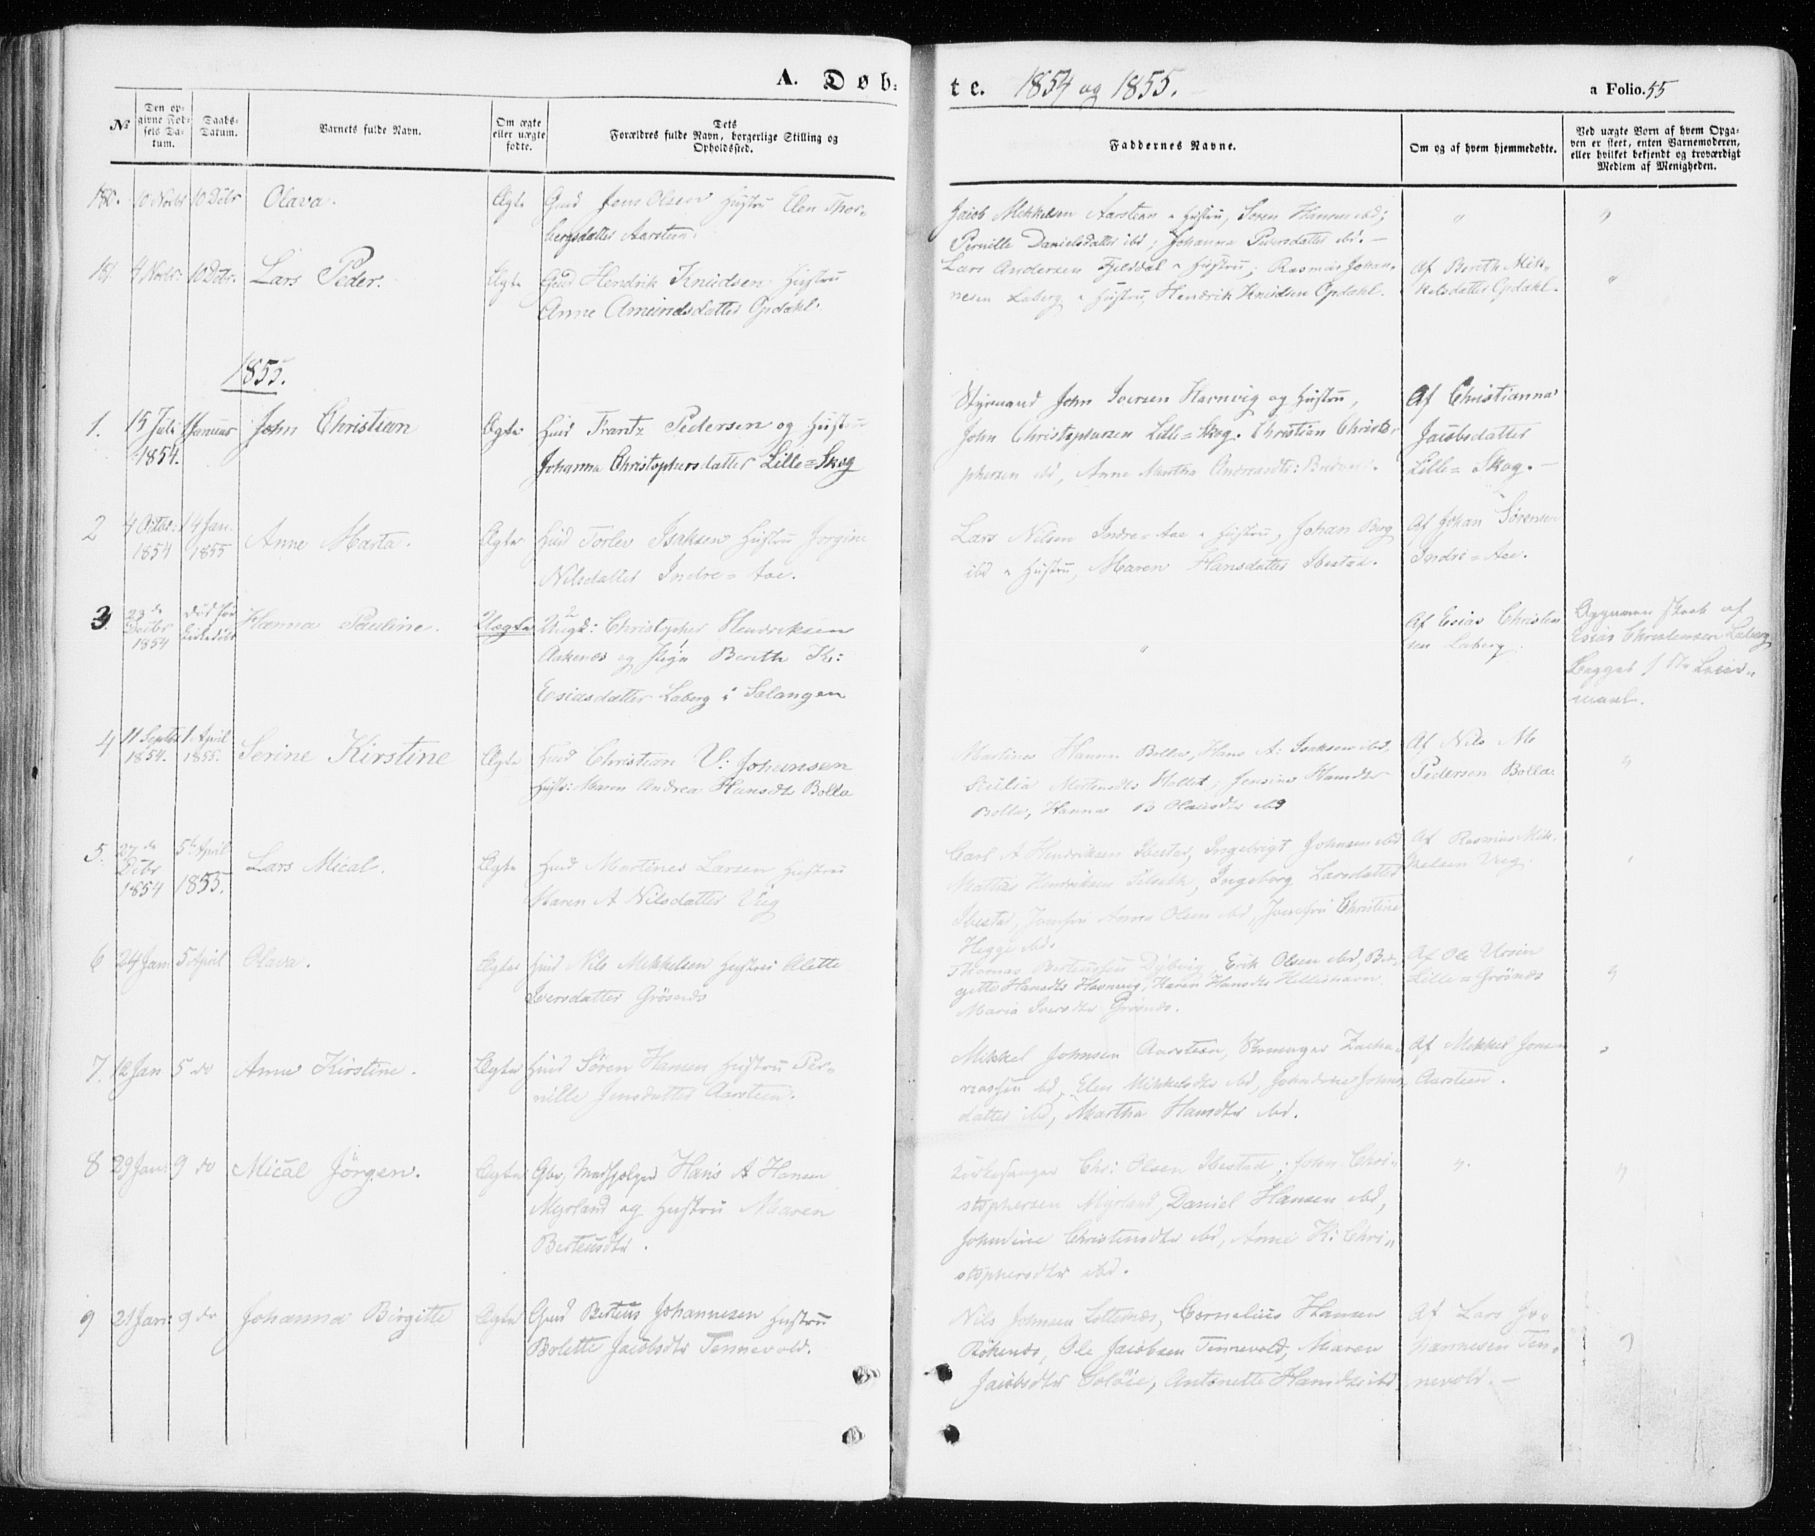 A. Døb-
te. 1854 og 1855.
a Folio. 55
No
Den op-
givne Fød-
sels Da-
tum.
Daabs-
Datum.
Barnets fulde Navn.
Om ægte
eller uægte
fødte.
Dets
Forældres fulde Navn, borgerlige Stilling og
Opholdssted.
Faddernes Navne.
Om og af hvem hjemmedøbte.
Ved uægte Børn af hvem Opga-
ven er skeet, enten Barnemoderen,
eller hvilket bekjendt og troværdigt
Medlem af Menigheden.
180. 10 Novbr 10 Debr Olava. Ægte Gmd Jens Olsen Hustru Elen Thor-
bergsdatter Aarsteen.
Jacob Mikkelsen Aarsteen & Hustru, Søren Hansen ibd;
Pernille Danielsdatter ibd; Johanna Pedersdatter ibd. -
181. 4 Novbr. 10 Debr. Lars Peder. Ægte Gmd Hendrik Knudsen Hustru
Anne Amundsdatter Opdahl.
Lars Andersen Fjelddal & Hustru, Rasmus Johan-
nesen Laberg & Hustru, Hendrik Knudsen Opdahl.
Af Berith Mik-
kelsdatter Opdahl.
1855.
1. 15 Juli 1854. 1 Januar John Christian Ægte Huid Frantz Pedersen og Hustru
Johanna Christophersdatter Lille=Skog
Styrmand John Iversen Havnvig og Hustru,
John Christophersen Lille=Skog. Christian Christo-
phersen ibd, Anne Martha
Af Christianna
Jacobsdatter
Lille=Skog. -
2 4 Octbr: 1854 14 Jan. 1855 Anne Marta. Ægte Huid Torlev Isaksen Hustru Jorgine
Nilsdatter Indre=Aae.
Lars Nilsen Indre=Aae & Hustru, Johan Berg
ibd & Hustru, Maren Hansdatter Ibestad.
Af Johan Sørensen
Indre=Aae.
3. 23de 1854 død før Hanna Pauline. Uægte Ungk: Christopher Hendriksen
Aakenes og Pige Berethe K:
Esiasdatter Laberg i Salangen
Af Esias Christen
sen Laberg.
af
Esias Christensen Laberg
Begges 1ste Leier-
maal.
4 11 Septbr 1854. 1 April 1855. Serine Kirstine Ægte Huid Christian V: Johansen
Hustr: Maren Andrea Hansdtr Bolla
Martines Hansen Bolla, Hans A: Isaksen ibd,
Jensine Hansdtr
Bolla, Hanna B Olausdtr ibd
Af Nils M
Pedersen Bolla
5. 27de Debr 1854 5te April 1855. Lars Mical. Ægte Huid Martines Larsen Hustru
Karen A Nilsdatter Vig
Carl A Hendriksen Ibestad, Ingebrigt Johnsen ibd
Mathias Hendriksen Ingeborg Larsdatter
Ibestad, Jomfru Anna Olsen ibd, Jomfru Christine
Hegge ibd.
Af Rasmus Mik-
kelsen Vig.
6 24 Jan. 5 April Olava. Ægte Huid Nils Mikkelsen Hustru Alette
Iversdatter Grösnes
Thomas Berteussen Dybvig, Erik Olsen ibd, Bir-
gitte Hansdtr Havnvig, Karen Hansdtr Helleshavn
Maria Iversdtr Grösnes.
Af Ole Ursin
Lille=Grösnes
7. 12 Jan 5 do Anne Kirstine. Ægte Huid Søren Hansen Hustru Per-
nille Jensdatter Aarsteen.
Mikkel Johnsen Aarsteen, Zacha-
riassen ibd, Elen Mikkelsdtr ibd, Johnsine Johns-
datter ibd, Martha Hansdtr ibd.
Af Mikkel Jensen
Aarsteen.
8 29 Jan: 9 do Mical Jörgen. Ægte Gbr, Medhjelper Hans A Hansen
Myrland og Hustru Maren
Berteusdtr.
Kirkesanger Chr: Olsen Ibestad, John Chri-
stophersen Myrland, Daniel Hansen ibd,
Johnsine Christensdtr ibd, Anne K: Chri-
stophersdtr ibd.
9 21 Jan: 9 do Johanna Birgitte Ægte Gmd Berteus Johannesen Hustru
Bolette Jacobsdtr Tennevold.
Nils Johnsen Cornelius Hansen
Rökenes, Ole Jacobsen Tennevold, Maren
Jacobsdtr Antonette Hansdtr ibd
Af Lars Jo-
hannesen Ten-
nevold. -